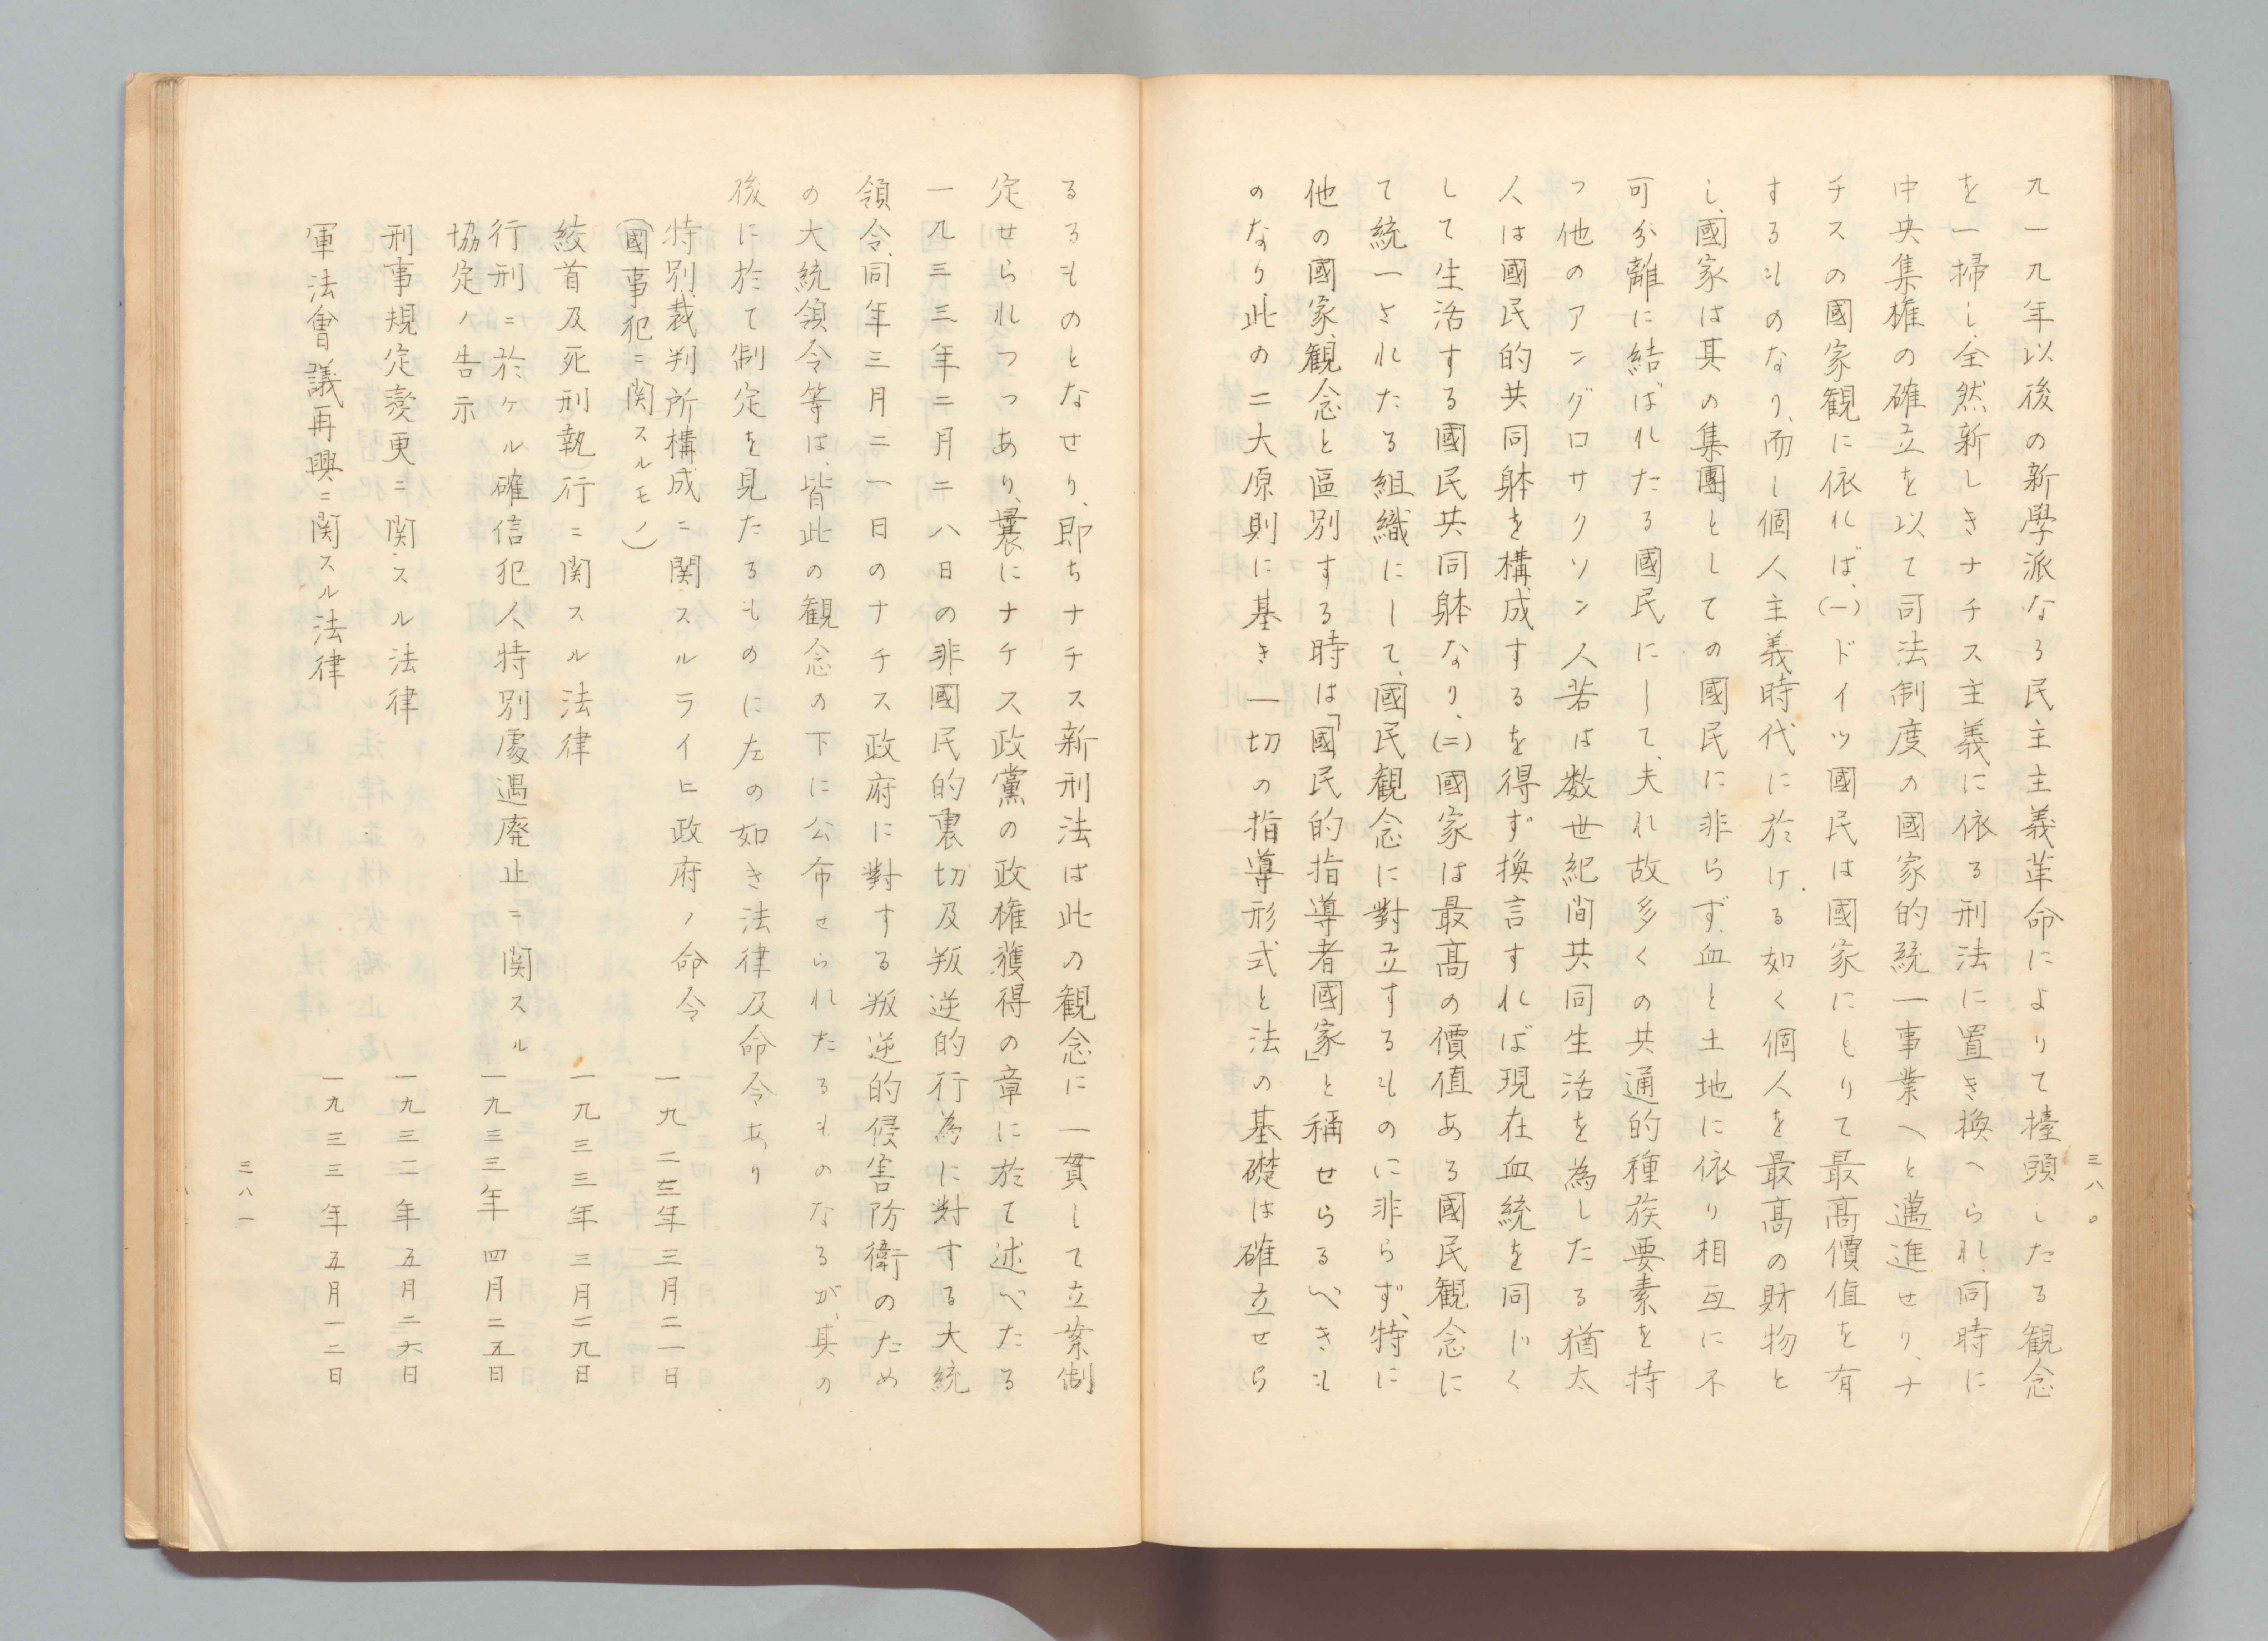 三八〇
九一九年以後の新學派なる民主主義革命によりて擡頭したる観念
を一掃し、全然新しきナチス主義に依る刑法に置き換へられ、同時に
中央集権の確立を以て司法制度の國家的統一事業へと邁進せり、ナ
チスの國家観に依れば、(一)ドイツ國民は國家にとりて最高價値を有
するものなり、而し個人主義時代に於ける如く個人を最高の財物と
し、國家は其の集團としての國民に非らず、血と土地に依り相互に不
可分離に結ばれたる國民にして、夫れ故多くの共通的種族要素を持
つ他のアングロサクソン人若は数世紀間共同生活を為したる猶太
人は國民的共同躰を構成するを得ず換言すれば現在血統を同じく
して生活する國民共同躰なり、(二)國家は最高の價値ある國民観念に
て統一されたる組織にして、國民観念に對立するものに非らず、特に
他の國家観念と區別する時は「國民的指導者國家」と稱せらるべきも
のなり此の二大原則に基き一切の指導形式と法の基礎は確立せら
るるものとなせり、即ちナチス新刑法は此の観念に一貫して立案制
定せられつつあり、曩にナチス政黨の政権獲得の章に於て述べたる
一九三三年二月二八日の非國民的裏切及叛逆的行為に對する大統
領令、同年三月二一日のナチス政府に對する叛逆的侵害防衛のため
の大統領令等は、皆此の観念の下に公布せられたるものなるが、其の
後に於て制定を見たるものに左の如き法律及命令あり
特別裁判所構成ニ関スルライヒ政府ノ命令 一九三三年三月二一日
(國事犯ニ関スルモノ)
絞首及死刑執行ニ関スル法律 一九三三年三月二九日
行刑ニ於ケル確信犯人特別處遇廃止ニ関スル 一九三三年四月二五日
協定ノ告示
刑事規定変更ニ関スル法律 一九三三年五月二六日
軍法會議再興ニ関スル法律 一九三三年五月一二日
三八一